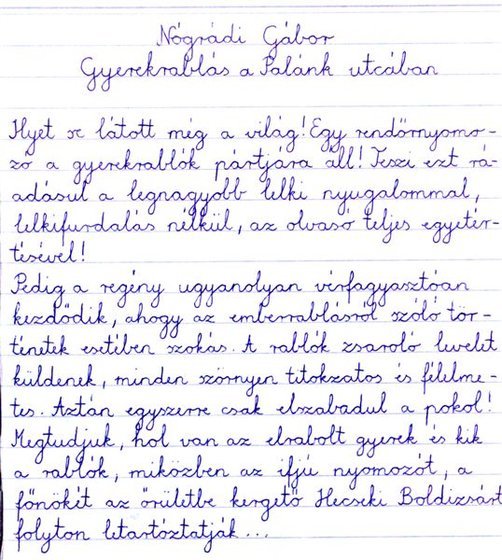 Nógrádi Gábor
Gyerekrablás a Palánk utcában
Ilyet se látott még a világ! Egy rendőrnyomo-
zó a gyerekrablók pártjára áll! Teszi ezt rá-
adásul a legnagyobb lelki nyugalommal,
lelkifurdalás nélkül, az olvasó teljes egyetér-
tésével!
Pedig a regény ugyanolyan vérfagyasztóan
kezdődik, ahogy az emberrablásról szóló tör-
ténetek esetében szokás. A rablók zsaroló levelet
küldenek, minden szörnyen titokzatos és félelme-
tes. Aztán egyszerre csak elszabadul a pokol!
Megtudjuk, hol van az elrabolt gyerek és kik
a rablók, miközben az ifjú nyomozót, a
főnökét az őrületbe kergető Hecseki Boldizsárt
folyton letartóztatják...